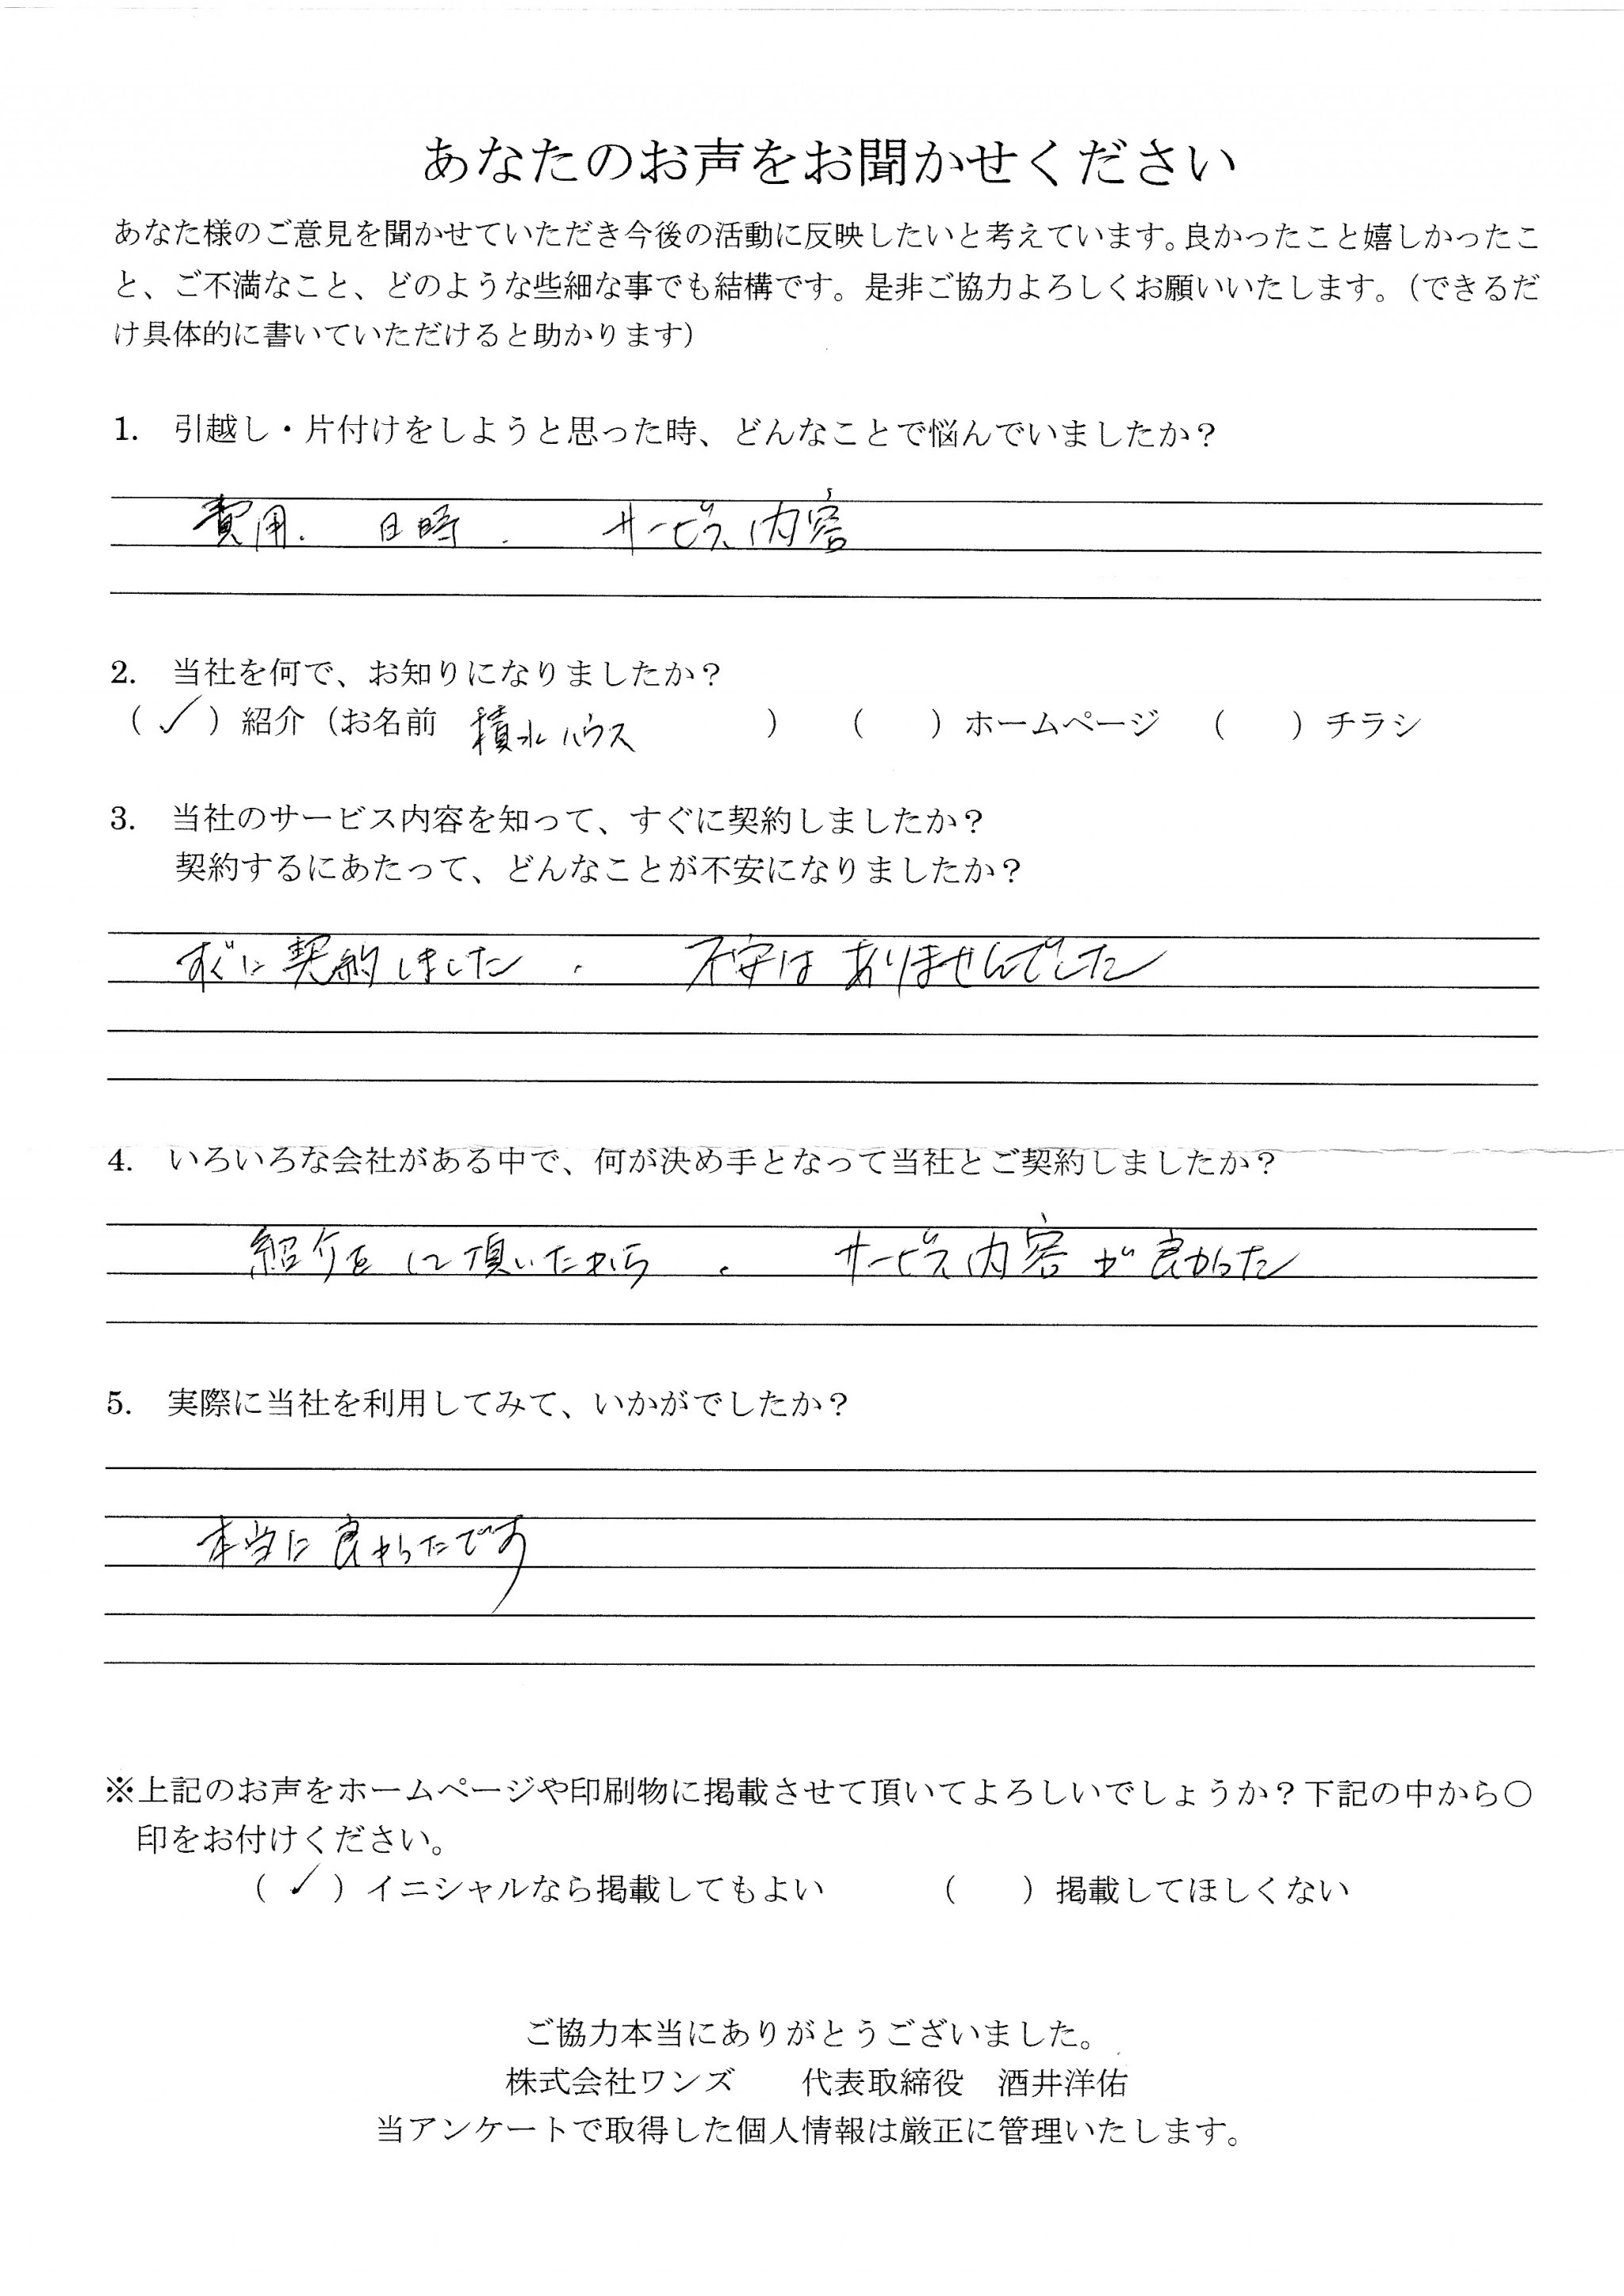 あなたのお声をお聞かせください
あなた様のご意見を聞かせていただき今後の活動に反映したいと考えています。良かったこと嬉しかったこ
と、ご不満なこと、どのような些細な事でも結構です。是非ご協力よろしくお願いいたします。（できるだ
け具体的に書いていただけると助かります）
1. 引越し・片付けをしようと思った時、どんなことで悩んでいましたか？
費用. 日時. サービス内容
2. 当社を何で、お知りになりましたか？
（✓）紹介（お名前 積水ハウス ） （ ）ホームページ （ ）チラシ
3. 当社のサービス内容を知って、すぐに契約しましたか？
契約するにあたって、どんなことが不安になりましたか？
すぐに契約しました. 不安はありませんでした
4. いろいろな会社がある中で、何が決め手となって当社とご契約しましたか？
紹介をして頂いたから. サービス内容が良かった
5. 実際に当社を利用してみて、いかがでしたか？
本当に良かったです
※上記のお声をホームページや印刷物に掲載させて頂いてよろしいでしょうか？下記の中から〇
印をお付けください。
（✓）イニシャルなら掲載してもよい （ ）掲載してほしくない
ご協力本当にありがとうございました。
株式会社ワンズ 代表取締役 酒井洋佑
当アンケートで取得した個人情報は厳正に管理いたします。